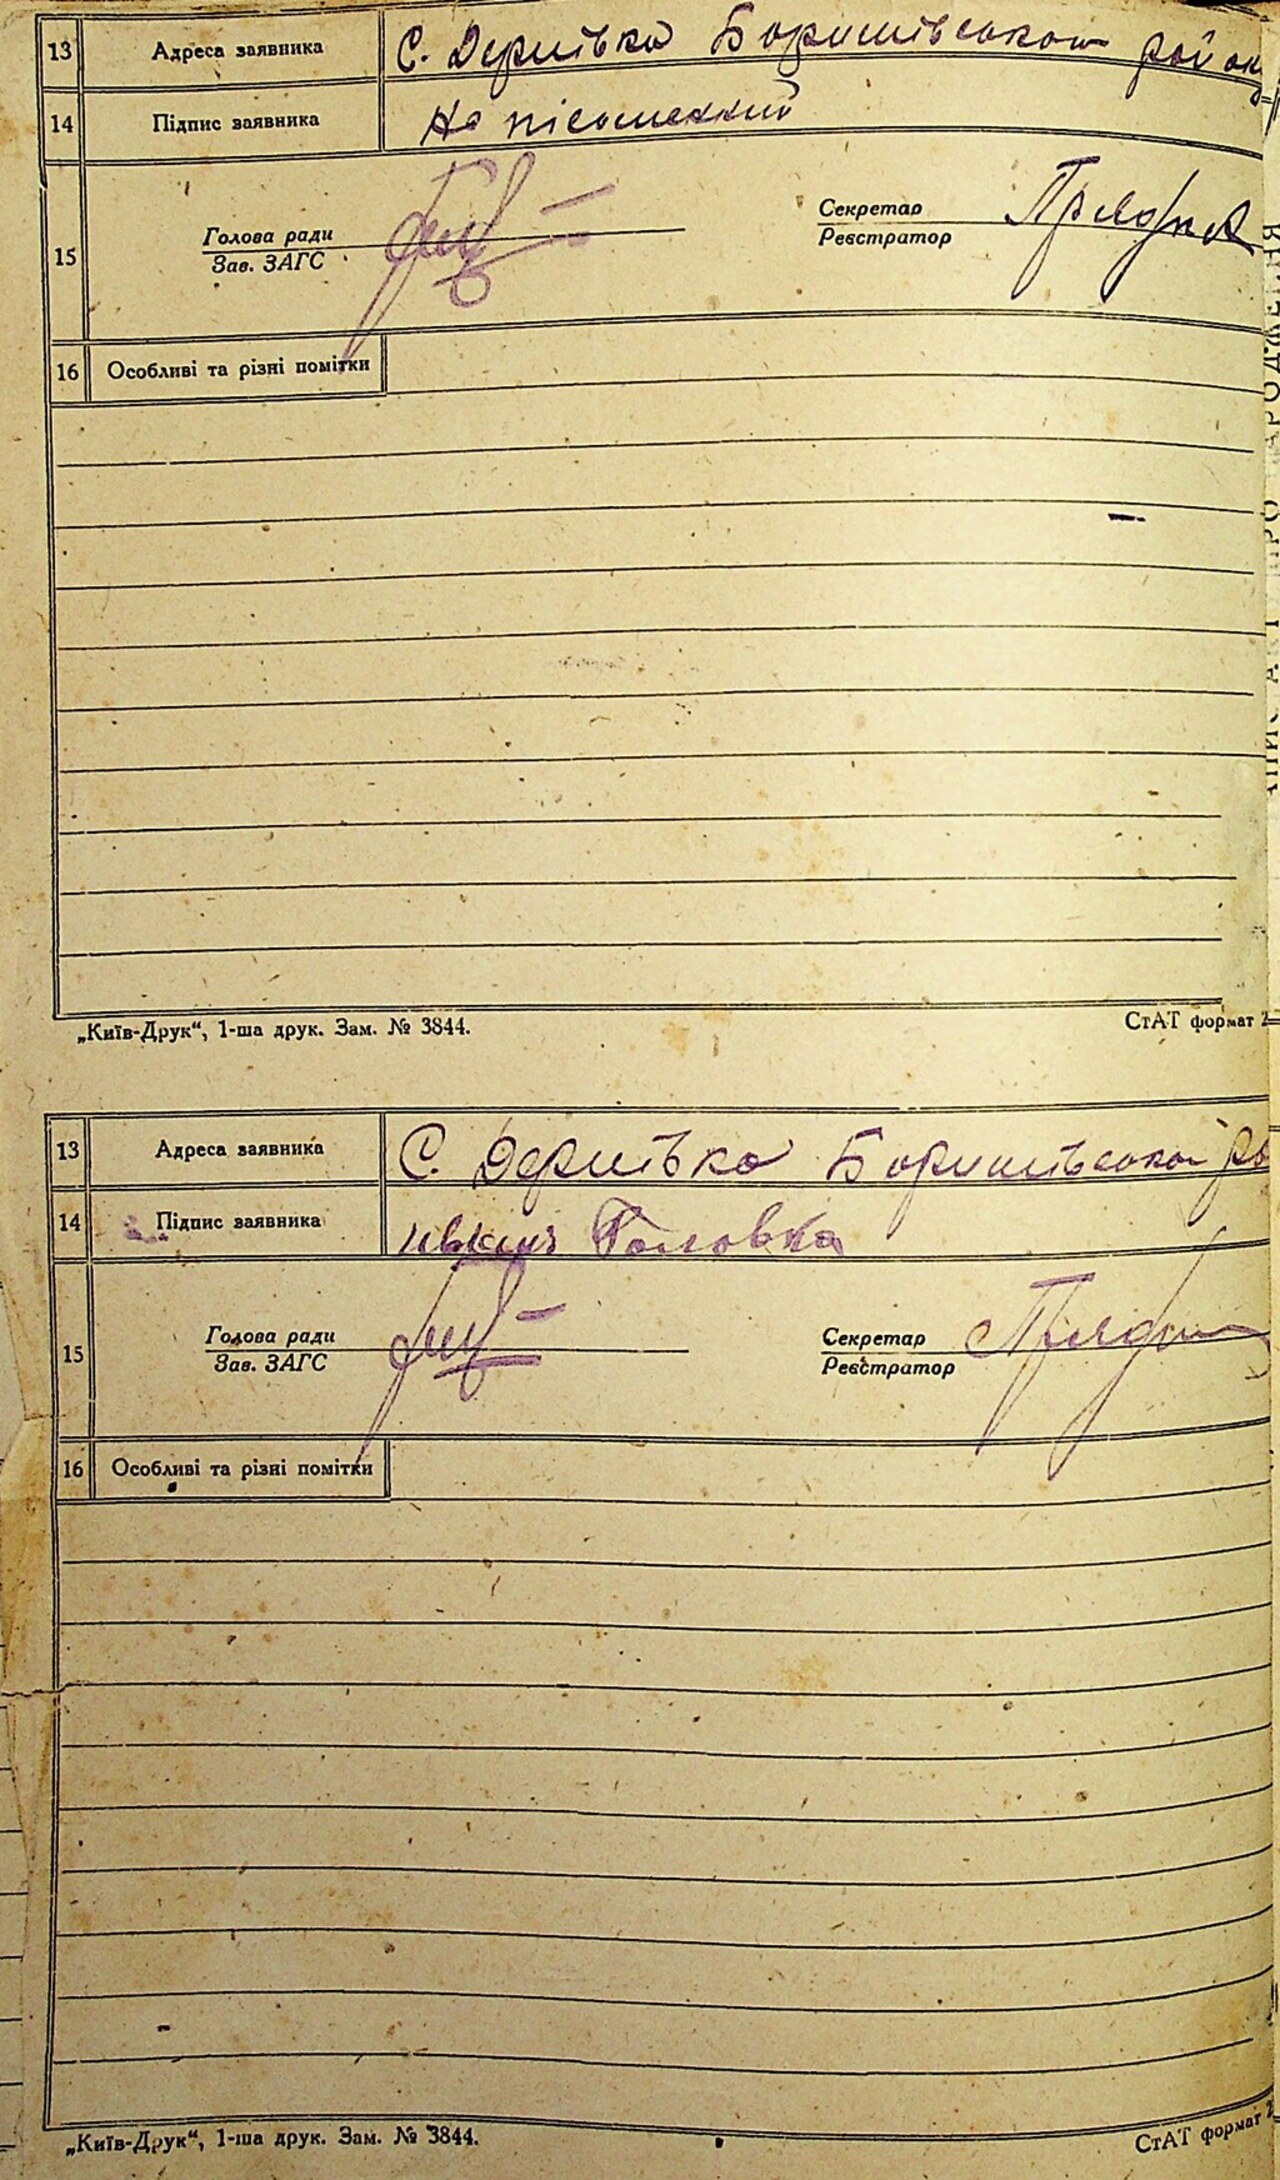 13 Адреса заявника С. Дернівка Боришівського району
14 Підпис заявника Не письменний
15 Голова ради Секретар
Зав. ЗАГС Реєстратор
16 Особливі та різні помітки
„Київ-Друк“, 1-ша друк. Зам. № 3844. СтАТ формат 2
13 Адреса заявника С. Дернівка Боришівського
14 Підпис заявника Головка
15 Голова ради Секретар
Зав. ЗАГС Реєстратор
16 Особливі та різні помітки
„Київ-Друк“, 1-ша друк. Зам. № 3844. СтАТ формат 2